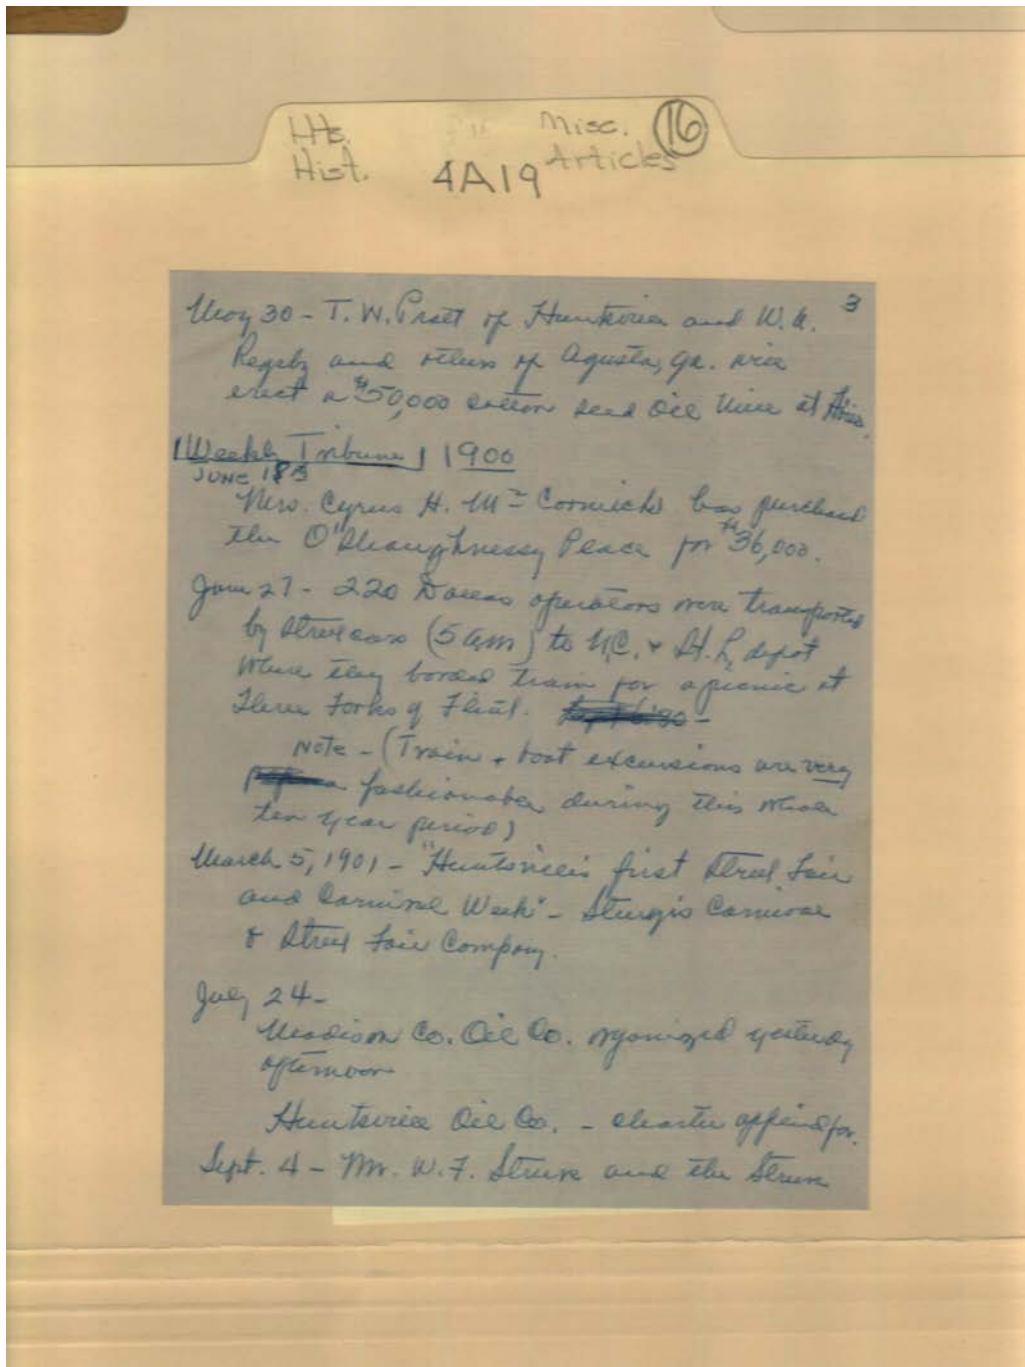 Hts. Misc. 16
Hist. 4A19 Articles
3
May 30 - T. W. Pratt of Huntsville and W. A.
and others of Agusta, Ga. will
erect a $50,000 cotton seed oil mill at
Weekly Tribune 1900
JUNE
Mrs. Cyrus H. McCormick has purchased
the O'Shaughnessy Place for $36,000.
June 27 - 220 Dallas operators were transported
by streetcars (5 am) to N.C. & St. L. depot
where they borded train for a picnic at
Three Forks of Flint.
Note - (Train + boat excursions are very
fashionable during this whole
ten year period)
March 5, 1901 - "Huntsville's first Street Fair
and Carnival Week" - Sturgis Carnival
& Street Fair Company.
July 24 -
Madison Co. Oil Co. organized yesterday
afternoon
Huntsville Oil Co. - charter applied for.
Sept. 4 - Mr. W. F. Struve and the Struve